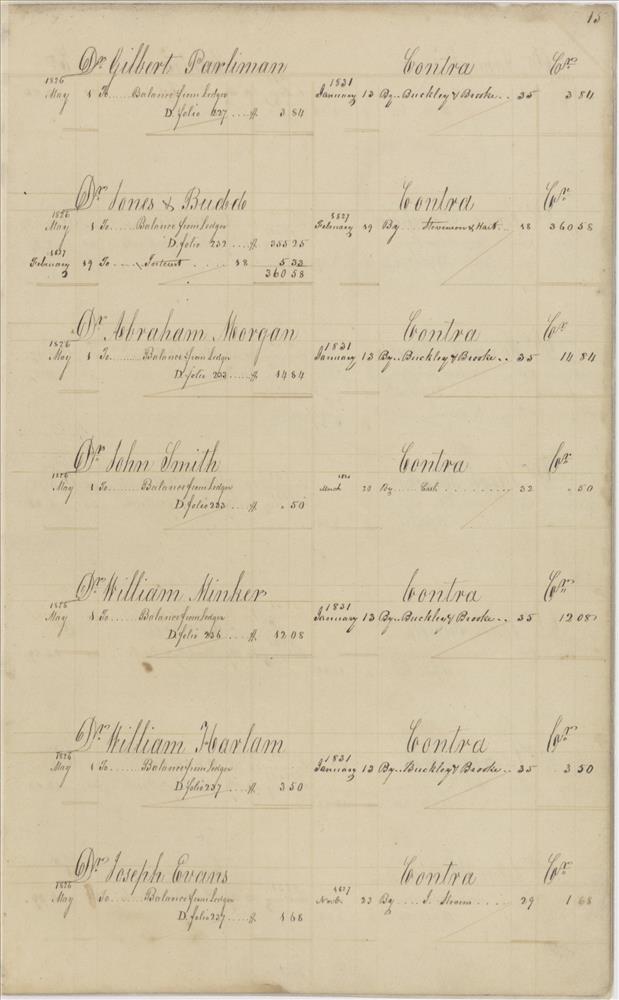 15
Dr Gilbert Parliman Contra Cr
1826 1831
May 1 To ..... Balance from Ledger January 13 By .. Buckley & Brooke .. 35 3 84
D. folio 227 .... ff. 3 84
Dr Jones & Budd Contra Cr
1826 1827
May 1 To .... Balance from Ledger February 19 By .... Stevenson & Hart .. 18 360 58
D. folio 232 ... ff. 355 25
1827
February 19 To .... Interest ..... 18 5 33
360 58
Dr Abraham Morgan Contra Cr
1826 1831
May 1 To ...... Balance from Ledger January 13 By .. Buckley & Brooke .. 35 14 84
D. folio 233 .... ff. 14 84
Dr John Smith Contra Cr
1826
May 1 To ....... Balance from Ledger March 20 By ..... Cash ......... 32 " 50
D. folio 233 ... ff. " 50
Dr William Minker Contra Cr
1826 1831
May 1 To ...... Balance from Ledger January 13 By .. Buckley & Brooke .. 35 12 08
D. folio 236 .... ff. 12 08
Dr William Harlam Contra Cr
1826 1831
May 1 To ...... Balance from Ledger January 13 By .. Buckley & Brooke .. 35 3 50
D. folio 237 .... ff. 3 50
Dr Joseph Evans Contra Cr
1826 1827
May To ....... Balance from Ledger Novb. 23 By .... J. ..... 29 1 68
D. folio 237 .... ff. 1 68